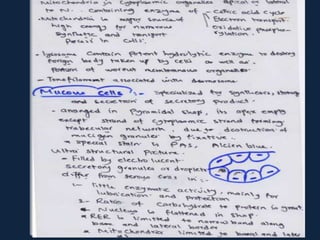 Mitochondria in cytoplasmic organelles apical or lateral
to N. Containing enzyme of - Citric acid cycle
- Mitochondria is major source of - Electron transport
high energy for numerous - Oxidative phospho-
synthetic and transport rylation
process in cells.
- lysosome Contain potent hydrolytic enzyme to destroy
foreign body taken up by cells as well as
Portion of wornout membranous organelles
- Tonofilament associated with desmosome
Mucous Cells :- Specialized by synthesis, storage
and secretion of secretory product.
- arranged in Pyramidal shap, its apex empty
except strand of cytoplasmic strand forming
trabecular network due to destruction of
mucigen granules by fixative.
* special stain is PAS, Alcian blue.
- Ultra structural Picture
- filled by electro lucent
secretory granules or droplets
differ from serous cells:
1- little enzymatic activity, mainly for
lubrication and protection
2- Ratio of carbohydrate to protein is great.
* Nucleus is flattened in shap.
* RER is limited to narrow band along
base and lateral border
* Mitochondria limited to basal and later